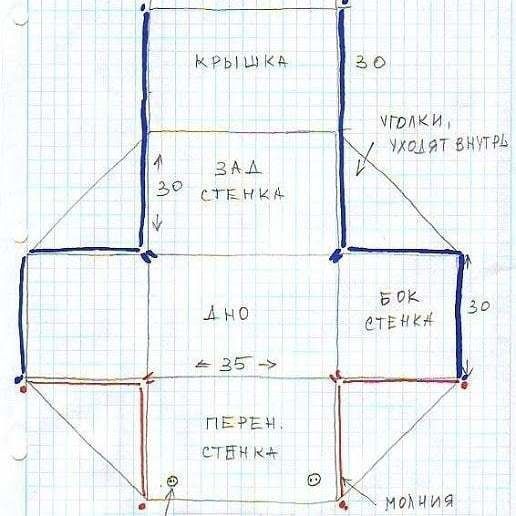 КРЫШКА
30
УГОЛКИ,
УХОДЯТ ВНУТРЬ
ЗАД
СТЕНКА
30
ДНО
35
БОК
СТЕНКА
30
ПЕРЕН.
СТЕНКА
МОЛНИЯ